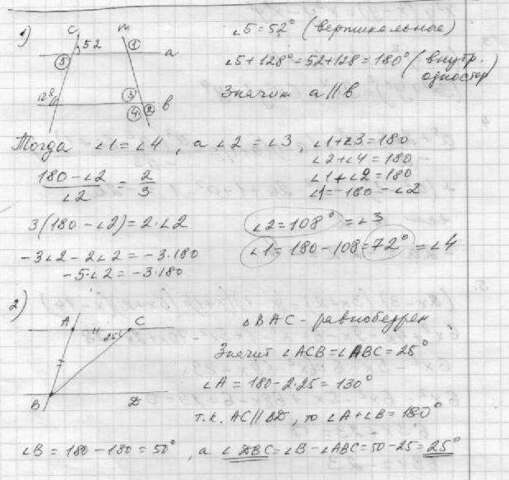 1)
c m
52 1 a
5
128° 3 2 b
4
∠5 = 52° (вертикальные)
∠5 + 128° = 52 + 128 = 180° (внутр. одностор)
Значит a || b
Тогда ∠1 = ∠4, а ∠2 = ∠3, ∠1 + ∠3 = 180
∠2 + ∠4 = 180
∠1 + ∠2 = 180
∠1 = 180 - ∠2
(180 - ∠2)/∠2 = 2/3
3(180 - ∠2) = 2·∠2
-3∠2 - 2∠2 = -3·180
-5·∠2 = -3·180
∠2 = 108° = ∠3
∠1 = 180 - 108 = 72° = ∠4
2)
A C
25°
B D
△BAC - равнобедрен
Значит ∠ACB = ∠ABC = 25°
∠A = 180 - 2·25 = 130°
т.к. AC || BD, то ∠A + ∠B = 180°
∠B = 180 - 130 = 50°, а ∠DBC = ∠B - ∠ABC = 50 - 25 = 25°